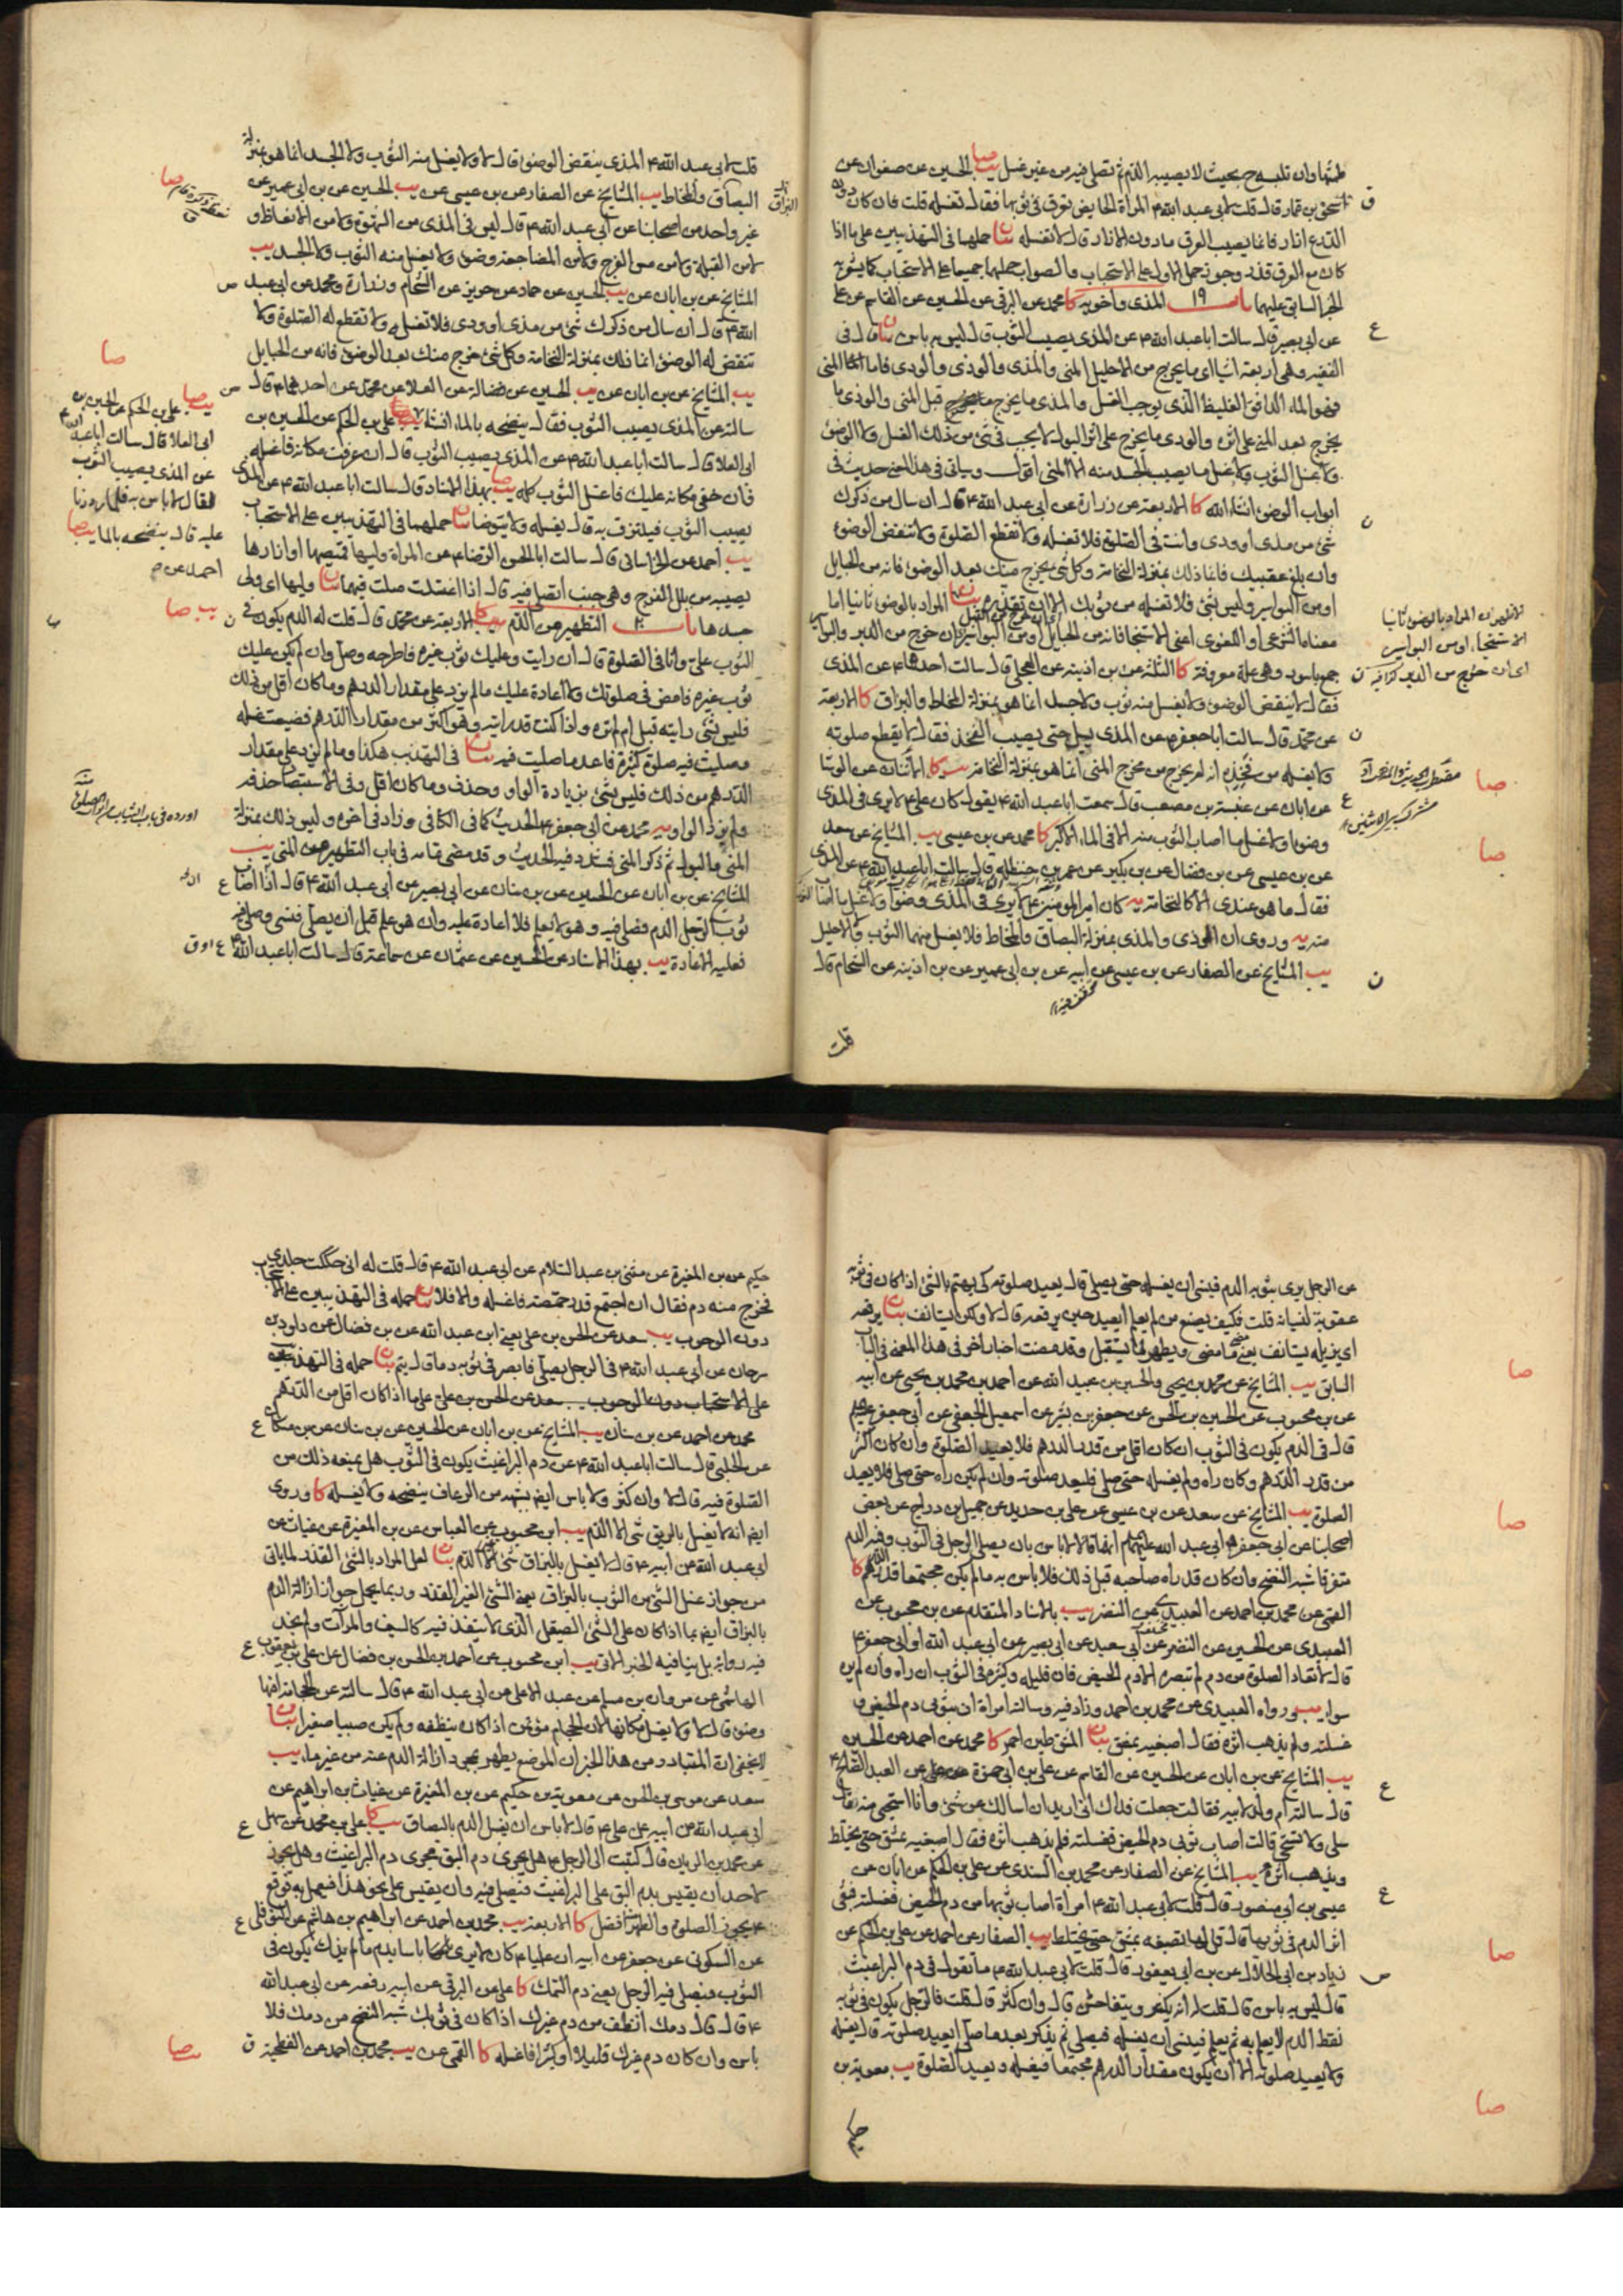 طمثها وان تلبسه بحيث لا يصيبه الدم ثم تصلي فيه من غير غسل يب صا الحسين عن صفوان عن
اسحق بن عمار قال قلت لابي عبد الله ع المرأة الحايض تعرق في ثوبها فقال تغسله قلت فان كان دون
الدرع ازار فانما يصيب العرق ما دون الازار قال لا تغسله بيان حملهما في التهذيبين على ما اذا
كان مع العرق قذر وجوز حمل الاول على الاستحباب والصواب حملهما جميعا على الاستحباب كما يشعر به
الخبر السابق عليهما باب ١٩ المذي واخويه كا محمد عن البرقي عن الحسين عن القاسم عن علي
عن ابي بصير قال سالت ابا عبد الله ع عن المذي يصيب الثوب قال ليس به باس بيان قال في
الفقيه وهي اربعة اشياء ما يخرج من الاحليل المني والمذي والوذي والودي فاما المني
فهو الماء الدافق الغليظ الذي يوجب الغسل والمذي ما يخرج قبل المني والوذي ما
يخرج بعد المني على اثره والودي ما يخرج على اثر البول لا يجب في شئ من ذلك الغسل ولا الوضوء
ولا غسل الثوب ولا غسل ما يصيب الجسد منه الا المني اقول وسياتي في هذا المعنى حديث في
ابواب الوضوء انشاء الله كا الاربعة عن زرارة عن ابي عبد الله ع قال ان سال من ذكرك
شئ من مذي او ودي وانت في الصلوة فلا تغسله ولا تقطع الصلوة ولا تنقض الوضوء
وان بلغ عقبيك فانما ذلك بمنزلة النخامة وكل شئ يخرج منك بعد الوضوء فانه من الحبايل
او من البواسير وليس بشئ فلا تغسله من ثوبك الا ان تقذره بيان المراد بالوضوء ثانيا اما
معناه الشرعي او اللغوي اعني الاستنجاء فانه من الحبايل او من البواسير ان خرج من الدبر والبواسير
جمع باسور وهي علة معروفة كا الثلثة عن بن اذينه عن العجلي قال سالت احدهما ع عن المذي
فقال لا ينقض الوضوء ولا يغسل منه ثوب ولا جسد انما هو بمنزلة المخاط والبزاق كا الاربعة
عن محمد قال سالت ابا جعفر ع عن المذي يسيل حتى يصيب الفخذ فقال لا يقطع صلوته
ولا يغسله من فخذه انه لم يخرج من مخرج المني انما هو بمنزلة النخامة يب كا الاثنان عن الوشا
عن ابان عن عنبسة بن مصعب قال سمعت ابا عبد الله ع يقول كان علي ع لا يرى في المذي
وضوءا ولا غسل ما اصاب الثوب منه الا في الماء الاكبر كا محمد عن بن عيسى يب المشايخ عن سعد
عن بن عيسى عن بن فضال عن بن بكير عن عمر بن حنظلة قال سالت ابا عبد الله ع عن المذي
فقال ما هو عندي الا كالنخامة يه كان امير المؤمنين ع لا يرى في المذي وضوءا ولا غسل ما اصاب
منه يه وروي ان الوذي والمذي بمنزلة البصاق والمخاط فلا يغسل منهما الثوب والاحليل
يب المشايخ عن الصفار عن بن عيسى عن ابيه عن بن ابي عمير عن بن اذينه عن الشحام قال
قلت
الاظهر ان المراد بالوضوء ثانيا
الاستنجاء او من البواسير
اي ان خرج من الدبر
صا
صا
قلت لابي عبد الله ع المذي ينقض الوضوء قال لا ولا يغسل منه الثوب ولا الجسد انما هو بمنزلة
البصاق والمخاط يب المشايخ عن الصفار عن بن عيسى عن يب الحسين عن بن ابي عمير عن
غير واحد من اصحابنا عن ابي عبد الله ع قال ليس في المذي من الشهوة ولا من الانعاظ ولا
من القبلة ولا من مس الفرج ولا من المضاجعة وضوء ولا يغسل منه الثوب ولا الجسد يب
المشايخ عن بن ابان عن يب الحسين عن حماد عن حريز عن الشحام وزرارة ومحمد عن ابي عبد
الله ع قال ان سال من ذكرك شئ من مذي او ودي فلا تغسله ولا تقطع له الصلوة ولا
تنقض له الوضوء انما ذلك بمنزلة النخامة وكل شئ خرج منك بعد الوضوء فانه من الحبايل
يب المشايخ عن بن ابان عن يب الحسين عن فضالة عن العلا عن محمد عن احدهما ع قال
سالته عن المذي يصيب الثوب فقال ينضحه بالماء انشاء علي بن الحكم عن الحسين بن
ابي العلا قال سالت ابا عبد الله ع عن المذي يصيب الثوب قال ان عرفت مكانه فاغسله
فان خفي مكانه عليك فاغسل الثوب كله يب صا بهذا الاسناد قال سالت ابا عبد الله ع عن المذي
يصيب الثوب فيلتزق به قال يغسله ولا يتوضا بيان حملهما في التهذيبين على الاستحباب
يب احمد عن الخراساني قال سالت ابا الحسن الرضا ع عن المرأة وليها قميصها او ازارها
يصيبه من بلل الفرج وهي جنب اتصلي فيه قال اذا اغتسلت صلت فيهما بيان وليها اي ولي
جسدها باب ٢٠ التطهير من الدم يب كا الاربعة عن محمد قال قلت له الدم يكون في
الثوب علي وانا في الصلوة قال ان رايت وعليك ثوب غيره فاطرحه وصل وان لم يكن عليك
ثوب غيره فامض في صلوتك ولا اعادة عليك ما لم يزد على مقدار الدرهم وما كان اقل من ذلك
فليس بشئ رايته قبل او لم تره واذا كنت قد رايته وهو اكثر من مقدار الدرهم فضيعت غسله
وصليت فيه صلوة كثيرة فاعد ما صليت فيه بيان في التهذيب هكذا وما لم يزد على مقدار
الدرهم من ذلك فليس بشئ بزيادة الواو وحذف وما كان اقل وفي الاستبصار حذفه
ولم يزد الواو يه محمد عن ابي جعفر ع الحديث كما في الكافي وزاد في اخره وليس ذلك بمنزلة
المني والبول ثم ذكر المني فشدد فيه الحديث وقد مضى تمامه في باب التطهير من المني يب
المشايخ عن بن ابان عن الحسين عن بن سنان عن ابي بصير عن ابي عبد الله ع قال اذا اصاب
ثوب الرجل الدم فصلى فيه وهو لا يعلم فلا اعادة عليه وان هو علم قبل ان يصلي فنسي وصلى فيه
فعليه الاعادة يب بهذا الاسناد عن الحسين عن عثمان عن سماعة قال سالت ابا عبد الله ع
صا
صا
يب صا علي بن الحكم عن الحسين بن
ابي العلا قال سالت ابا عبد الله ع
عن المذي يصيب الثوب
فقال لا باس به فلما رددنا
عليه قال ينضحه بالماء يب صا
احمد عن
يب صا
عن الرجل يرى بثوبه الدم فينسى ان يغسله حتى يصلي قال يعيد صلوته كي يهتم بالشئ اذا كان في ثوبه
عقوبة لنسيانه قلت فكيف يصنع من لم يعلم ايعيد حين يرفعه قال لا ولكن يستانف بيان يرفعه
اي يزيله يستانف يعني ما مضى ويطهر لما يستقبل وقد مضت اخبار اخر في هذا المعنى في الباب
السابق يب المشايخ عن محمد بن يحيى والحسين بن عبيد الله عن احمد بن محمد بن يحيى عن ابيه
عن بن محبوب عن الحسين بن الحسن عن جعفر بن بشير عن اسمعيل الجعفي عن ابي جعفر ع
قال في الدم يكون في الثوب ان كان اقل من قدر الدرهم فلا يعيد الصلوة وان كان اكثر
من قدر الدرهم وكان راه ولم يغسله حتى صلى فليعد صلوته وان لم يكن راه حتى صلى فلا يعيد
الصلوة يب المشايخ عن سعد عن بن عيسى عن علي بن حديد عن جميل بن دراج عن بعض
اصحابنا عن ابي جعفر وابي عبد الله عليهما السلام انهما قالا لا باس بان يصلي الرجل في الثوب وفيه الدم
متفرقا شبه النضح وان كان قد راه صاحبه قبل ذلك فلا باس به ما لم يكن مجتمعا قدر الدرهم كا
القمي عن محمد بن احمد عن العبيدي عن النضر يب بالاسناد المتقدم عن بن محبوب عن
العبيدي عن الحسين عن النضر عن ابي سعيد عن ابي بصير عن ابي عبد الله او ابي جعفر ع
قال لا تعاد الصلوة من دم لم تبصره الا دم الحيض فان قليله وكثيره في الثوب ان راه وان لم يره
سواء يب ورواه العبيدي عن محمد بن احمد وزاد فيه وسالته امراة ان بثوبي دم الحيض و
غسلته ولم يذهب اثره فقال اصبغيه بمشق بيان المشق طين احمر كا محمد عن احمد عن الحسين
يب المشايخ عن بن ابان عن الحسين عن القاسم عن علي بن ابي حمزة عن العبد الصالح ع
قال سالته ام ولد لابيه فقالت جعلت فداك اني اريد ان اسالك عن شئ وانا استحيي منه فقال
سلي ولا تستحي قالت اصاب ثوبي دم الحيض فغسلته فلم يذهب اثره فقال اصبغيه بمشق حتى يختلط
ويذهب اثره يب المشايخ عن الصفار عن محمد بن السندي عن علي بن الحكم عن ابان عن
عيسى بن ابي منصور قال قلت لابي عبد الله ع امراة اصاب ثوبها من دم الحيض فغسلته فبقي
اثر الدم في ثوبها قال قل لها تصبغه بمشق حتى يختلط يب الصفار عن احمد عن علي بن الحكم عن
زياد بن ابي الحلال عن بن ابي يعفور قال قلت لابي عبد الله ع ما تقول في دم البراغيث
قال ليس به باس قال قلت انه يكثر ويتفاحش قال وان كثر قال قلت فالرجل يكون في ثوبه
نقط الدم لا يعلم به ثم يعلم فينسى ان يغسله فيصلي ثم يذكر بعد ما صلى ايعيد صلوته قال يغسله
ولا يعيد صلوته الا ان يكون مقدار الدرهم مجتمعا فيغسله ويعيد الصلوة يب معوية بن
حكيم
صا
صا
صا
صا
حكيم عن بن المغيرة عن مثنى بن عبد السلام عن ابي عبد الله ع قال قلت له اني حككت جلدي
فخرج منه دم فقال ان اجتمع قدر حمصة فاغسله والا فلا بيان حمله في التهذيبين على الاستحباب
دون الوجوب يب سعد عن الحسن بن علي يعني ابن عبد الله عن بن فضال عن داود بن
سرحان عن ابي عبد الله ع في الرجل يصلي فابصر في ثوبه دما قال يتم بيان حمله في التهذيب
على ما اذا كان اقل من الدرهم
محمد عن احمد عن بن سنان يب المشايخ عن بن ابان عن الحسين عن بن سنان عن بن مسكان
عن الحلبي قال سالت ابا عبد الله ع عن دم البراغيث يكون في الثوب هل يمنعه ذلك من
الصلوة فيه قال لا وان كثر ولا باس ايضا بشبهه من الرعاف ينضحه ولا يغسله كا وروي
ايضا انه لا يغسل بالريق شئ الا الدم يب ابن محبوب عن العباس عن بن المغيرة عن غياث عن
ابي عبد الله عن ابيه ع قال لا يغسل بالبزاق شئ غير الدم بيان لعل المراد بالشئ القذر لما ياتي
من جواز غسل الشئ من الثوب بالبزاق يعني الشئ الغير القذر وربما يحمل جواز ازالة الدم
بالبزاق ايضا بما اذا كان على الشئ الصيقل الذي لا ينفذ فيه كالسيف والمرآت ولم نجد
فيه رواية بل ينافيه الخبر الاتي يب ابن محبوب عن احمد بن الحسن بن فضال عن علي بن يعقوب
الهاشمي عن مروان بن مسلم عن عبد الاعلى عن ابي عبد الله ع قال سالته عن الحجامة افيها
وضوء قال لا ولا يغسل مكانها لان الحجام مؤتمن اذا كان ينظفه ولم يكن صبيا صغيرا بيان
لا يخفى ان المتبادر من هذا الخبر ان الموضع يطهر بمجرد ازالة الدم عنه من غير ماء يب
سعد عن موسى بن الحسن عن معوية بن حكيم عن بن المغيرة عن غياث بن ابراهيم عن
ابي عبد الله عن ابيه عن علي ع قال لا باس ان يغسل الدم بالبصاق يب كا علي بن محمد عن سهل
عن محمد بن الريان قال كتبت الى الرجل ع هل يجري دم البق مجرى دم البراغيث وهل يجوز
لاحد ان يقيس بدم البق على البراغيث فيصلي فيه وان يقيس على نحو هذا فيعمل به فوقع
ع يجوز الصلوة والطهر منه افضل كا الاربعة يب محمد بن احمد عن ابراهيم بن هاشم عن النوفلي
عن السكوني عن جعفر عن ابيه ان عليا ع كان لا يرى باسا بدم ما لم يذك يكون في
الثوب فيصلي فيه الرجل يعني دم السمك كا علي عن البرقي عن ابيه رفعه عن ابي عبد الله
ع قال قال دمك انظف من دم غيرك اذا كان في ثوبك شبه النضح من دمك فلا
باس وان كان دم غيرك قليلا او كثيرا فاغسله كا القمي عن يب محمد بن احمد عن الفطحية
يب صا